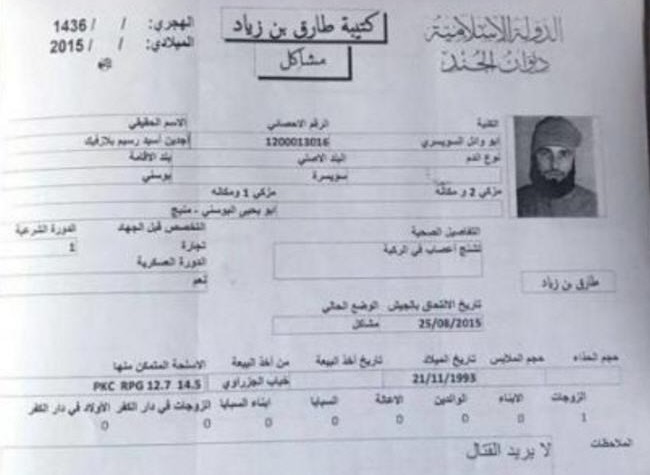 الدولة الإسلامية
ديوان الجند
كتيبة طارق بن زياد
مشاكل
الهجري: / / 1436
الميلادي: / / 2015
الكنية الرقم الاحصائي الاسم الحقيقي
ابو وائل السويسري 1200013016
نوع الدم البلد الاصلي بلد الاقامة
سويسرة بوسني
مزكي 2 و مكانه مزكي 1 ومكانه
ابو يحيى البوسني - منبج
التفاصيل الصحية التخصص قبل الجهاد الدورة الشرعية
تشنج أعصاب في الركبة تجارة 1
الدورة العسكرية
نعم
طارق بن زياد
تاريخ الالتحاق بالجيش الوضع الحالي
25/08/2015 مشاكل
حجم الحذاء حجم الملابس تاريخ الميلاد تاريخ أخذ البيعة من أخذ البيعة الاسلحة المتمكن منها
21/11/1993 خباب الجزراوي PKC RPG 12.7 14.5
الزوجات الابناء الوالدين الاعالة السبايا ابناء السبايا الزوجات في دار الكفر الأولاد في دار الكفر
1 0 0 0 0 0 0 0
الملاحظات
لا يريد القتال